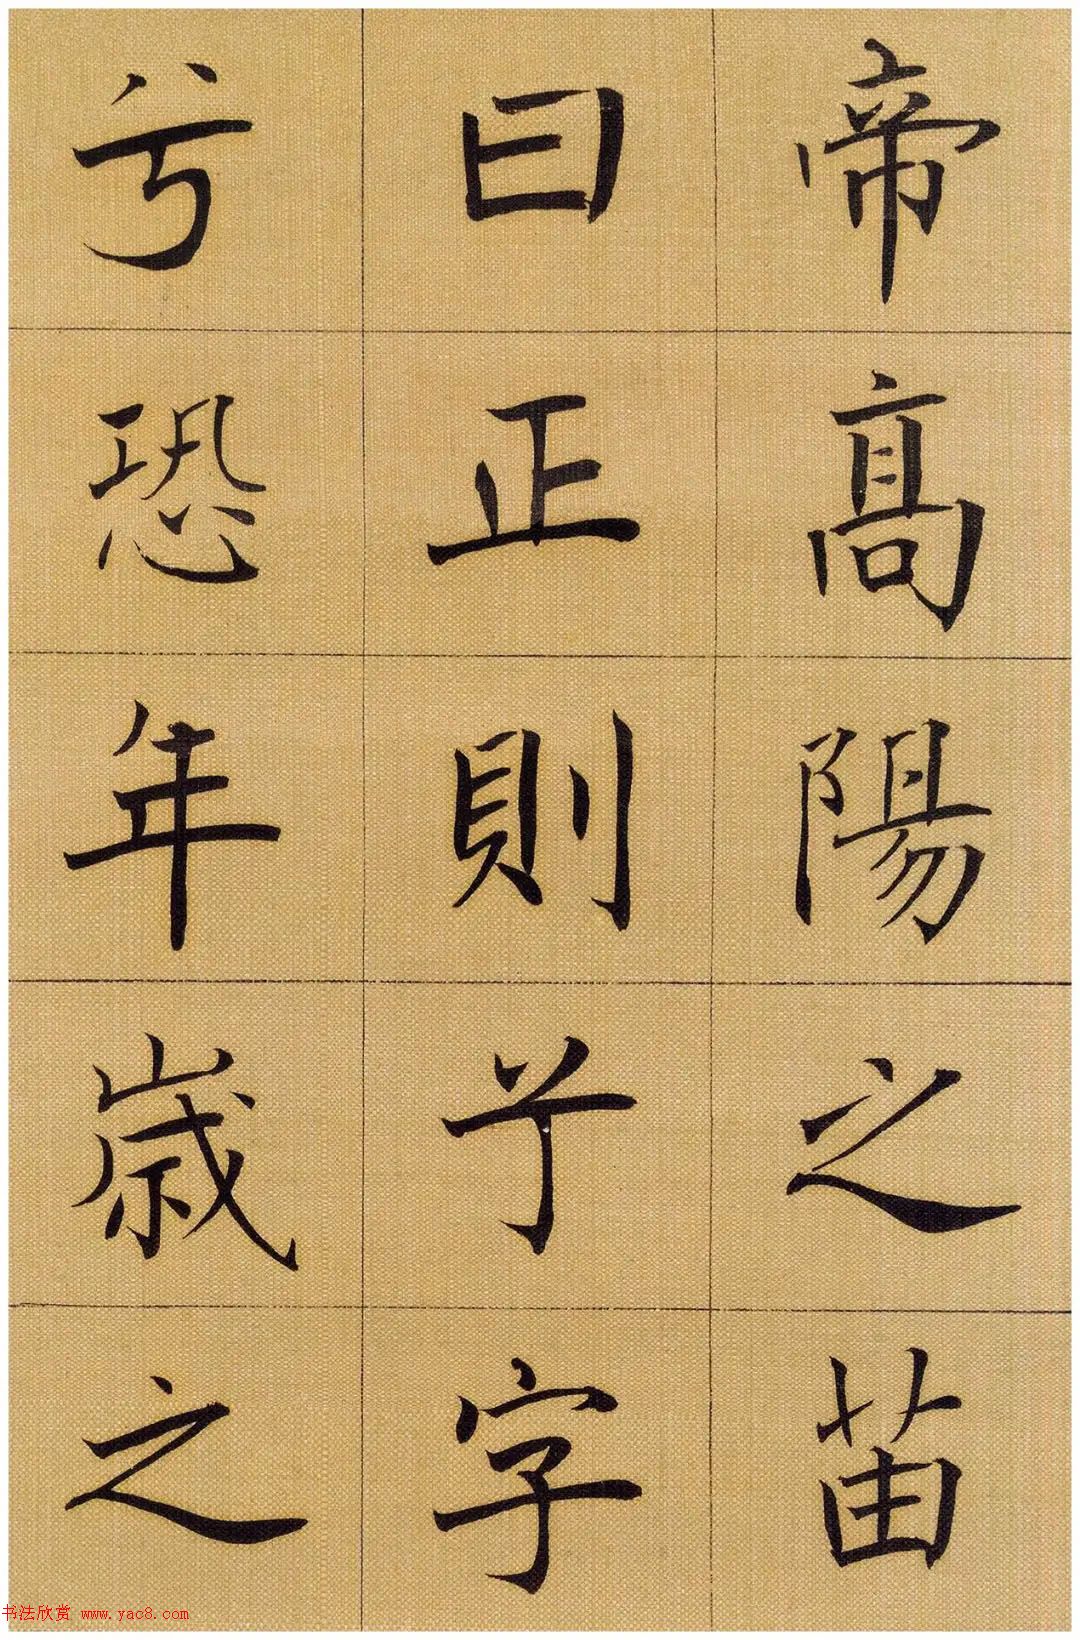 帝高陽之苗
曰正則兮字
兮恐年歲之
书法欣赏 www.yac8.com